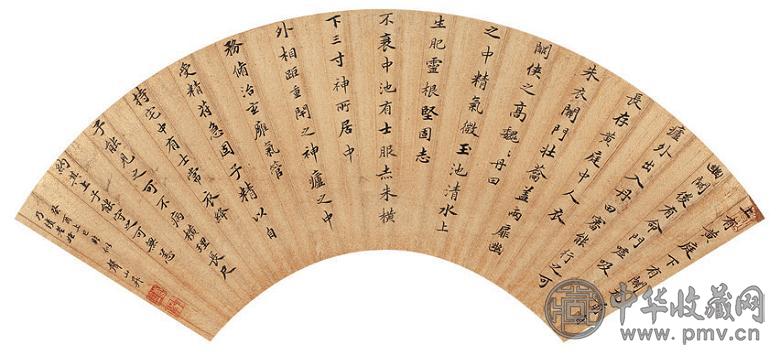 上有黄庭下有關
幽闕後有命門噓吸
廬外出入丹田審能行之可
長存黄庭中人衣
朱衣關門壯蘥蓋兩扉幽
闕俠之高魏〻丹田
之中精氣微玉池清水上
生肥靈根堅固志
不衰中池有士服赤朱橫
下三寸神所居中
外相距重閉之神廬之中
務脩治玄雍氣管
受精苻急固子精以自
持宅中有士常衣絳
子能見之可不病橫理長尺
約其上子能守之可無恙
癸酉上巳
中华收藏网
www.pmv.cn